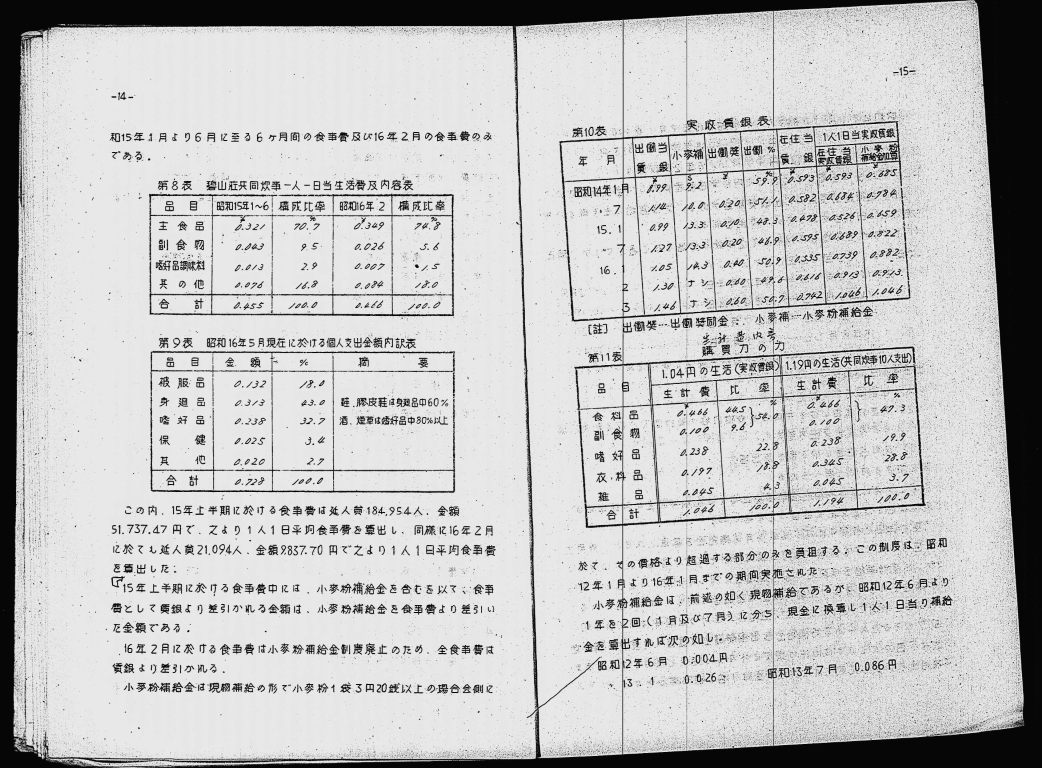 -14-
和15年1月より6月に至る6ヶ月間の食事費及び16年2月の食事費のみ
である。
第8表 碧山荘共同炊事一人一日当生活費及内容表
品目 昭和15年1~6 構成比率 昭和16年2 構成比率
主食品 0.321 70.7 0.349 74.8
副食物 0.043 9.5 0.026 5.6
嗜好品調味料 0.013 2.9 0.007 1.5
其の他 0.076 16.8 0.084 18.0
合計 0.455 100.0 0.466 100.0
第9表 昭和16年5月現在に於ける個人支出金額内訳表
品目 金額 % 摘要
被服品 0.132 18.0
身廻品 0.313 43.0 鞋、膠皮鞋は身廻品中60%
嗜好品 0.238 32.7 酒、煙草は嗜好品中80%以上
保健 0.025 3.4
其他 0.020 2.7
合計 0.728 100.0
この内、15年上半期に於ける食事費は延人員184,954人、金額
51,737.47円で、之より1人1日平均食事費を算出し、同様に16年2月
に於ても延人員21,094人、金額9837.70円で之より1人1日平均食事費
を算出した。
15年上半期に於ける食事費中には、小麦粉補給金を含むを以て、食事
費として賃銀より差引かれる金額は、小麦粉補給金を食事費より差引い
た金額である。
16年2月に於ける食事費は小麦粉補給金制度廃止のため、全食事費は
賃銀より差引かれる。
小麦粉補給金は現物補給の形で小麦粉1袋3円20銭以上の場合会側に
-15-
第10表 実収賃銀表
年月 出働当賃銀 小麦補 出働奨 出働% 在住当賃銀 1人1日当実収賃銀
在住当実収賃銀 小麦粉補給金加算
昭和14年1月 0.99 9.2 59.9 0.593 0.593 0.685
7 1.14 10.0 0.20 51.1 0.582 0.684 0.784
15.1 0.99 13.3 0.10 48.3 0.478 0.526 0.659
7 1.27 13.3 0.20 46.9 0.595 0.689 0.822
16.1 1.05 14.3 0.40 50.9 0.535 0.739 0.882
2 1.30 ナシ 0.60 49.6 0.616 0.913 0.913
3 1.46 ナシ 0.60 50.7 0.742 1.046 1.046
[註] 出働奨…出働奨励金 小麦補…小麦粉補給金
第11表 購買力の力
品目 1.04円の生活(実収賃銀) 1.19円の生活(共同炊事10人支出)
生計費 比率 生計費 比率
食料品 0.466 44.5 54.0 0.466 47.3
副食物 0.100 9.6 0.100
嗜好品 0.238 22.8 0.238 19.9
衣料品 0.197 18.8 0.345 28.8
雑品 0.045 4.3 0.045 3.7
合計 1.046 100.0 1.194 100.0
於て、その価格より超過する部分のみを負担する。この制度は、昭和
12年1月より16年1月までの期間実施された。
小麦粉補給金は、前述の如く現物補給であるが、昭和12年6月より
1年を2回(1月及び7月)に分ち、現金に換算し1人1日当り補給
金を算出すれば次の如し。
昭和12年6月 0.004円
13 1 0.026 昭和13年7月 0.086円